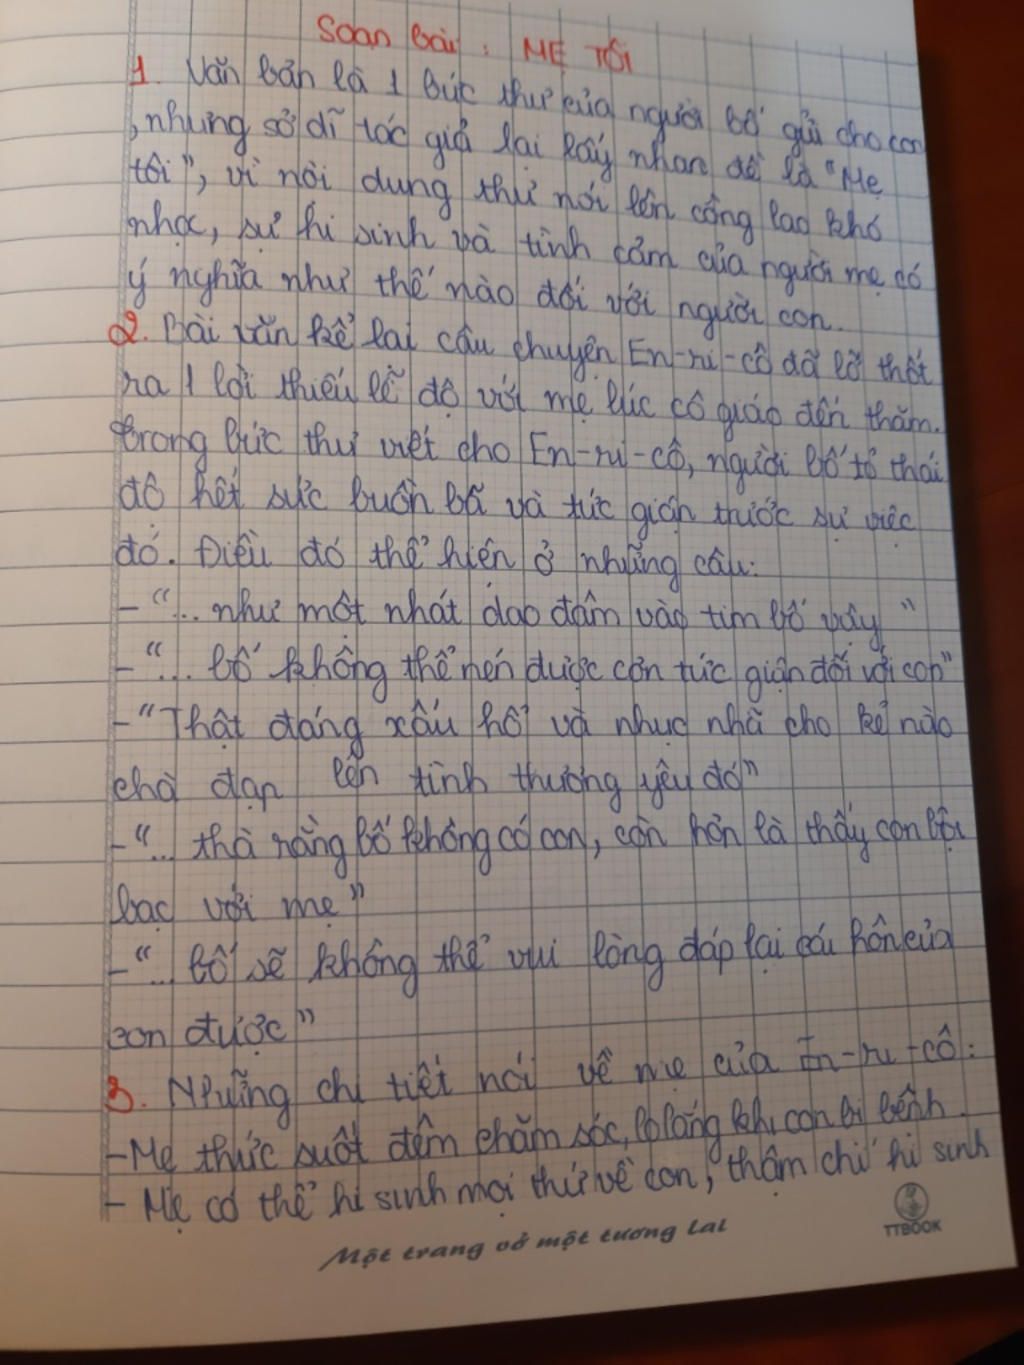 Soạn bài : MẸ TÔI
1. Văn bản là 1 bức thư của người bố gửi cho con
, nhưng sở dĩ tác giả lại lấy nhan đề là "Mẹ
tôi", vì nội dung thư nói lên công lao khó
nhọc, sự hi sinh và tình cảm của người mẹ có
ý nghĩa như thế nào đối với người con.
2. Bài văn kể lại câu chuyện En-ri-cô đã lỡ thốt
ra 1 lời thiếu lễ độ với mẹ lúc cô giáo đến thăm.
trong bức thư viết cho En-ri-cô, người bố tỏ thái
độ hết sức buồn bã và tức giận trước sự việc
đó. Điều đó thể hiện ở những câu:
- "... như một nhát dao đâm vào tim bố vậy"
- "... bố không thể nén được cơn tức giận đối với con"
- "Thật đáng xấu hổ và nhục nhã cho kẻ nào
chà đạp lên tình thương yêu đó"
- "... thà rằng bố không có con, còn hơn là thấy con bội
bạc với mẹ"
- "... bố sẽ không thể vui lòng đáp lại cái hôn của
con được"
3. Những chi tiết nói về mẹ của En-ri-cô:
- Mẹ thức suốt đêm chăm sóc, lo lắng khi con bị bệnh.
- Mẹ có thể hi sinh mọi thứ về con, thậm chí hi sinh
Một trang vở một tương lai
TTBOOK